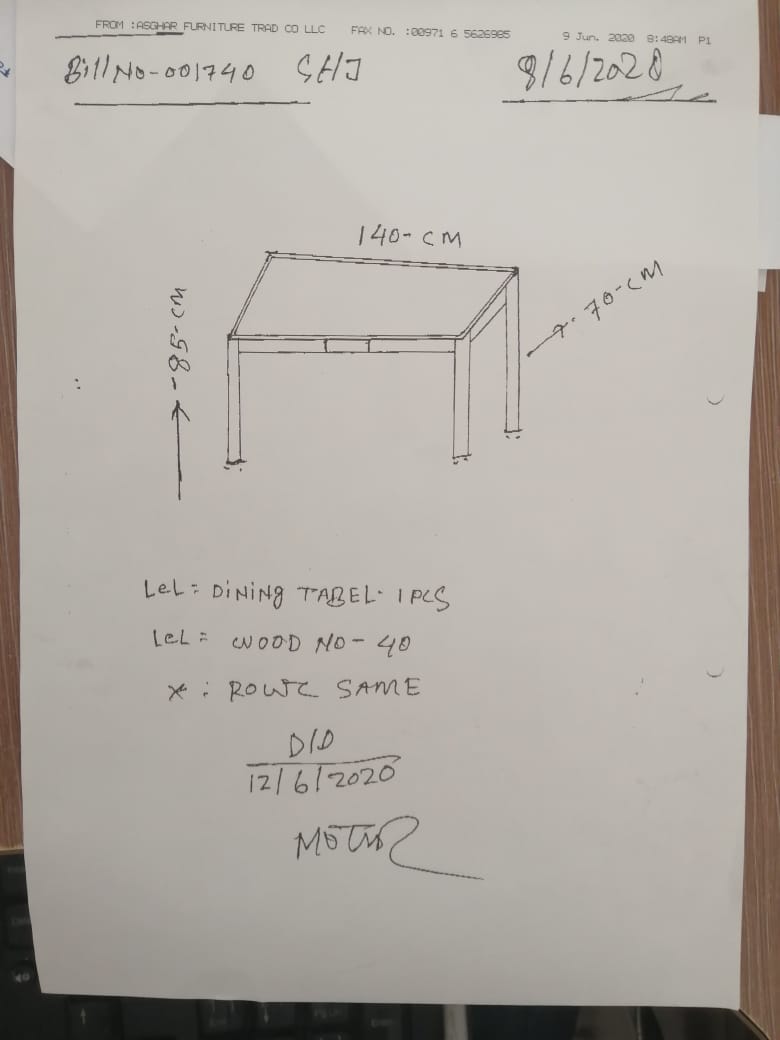 FROM :ASGHAR FURNITURE TRAD CO LLC FAX NO. :00971 6 5626985 9 Jun. 2020 8:48AM P1
Bill No-001740 SHJ 8/6/2020
140-CM
70-CM
85-CM
LeL= DiNiNg TABEL. 1 PCS
LeL= WOOD NO-40
SAME
D/D
12/6/2020